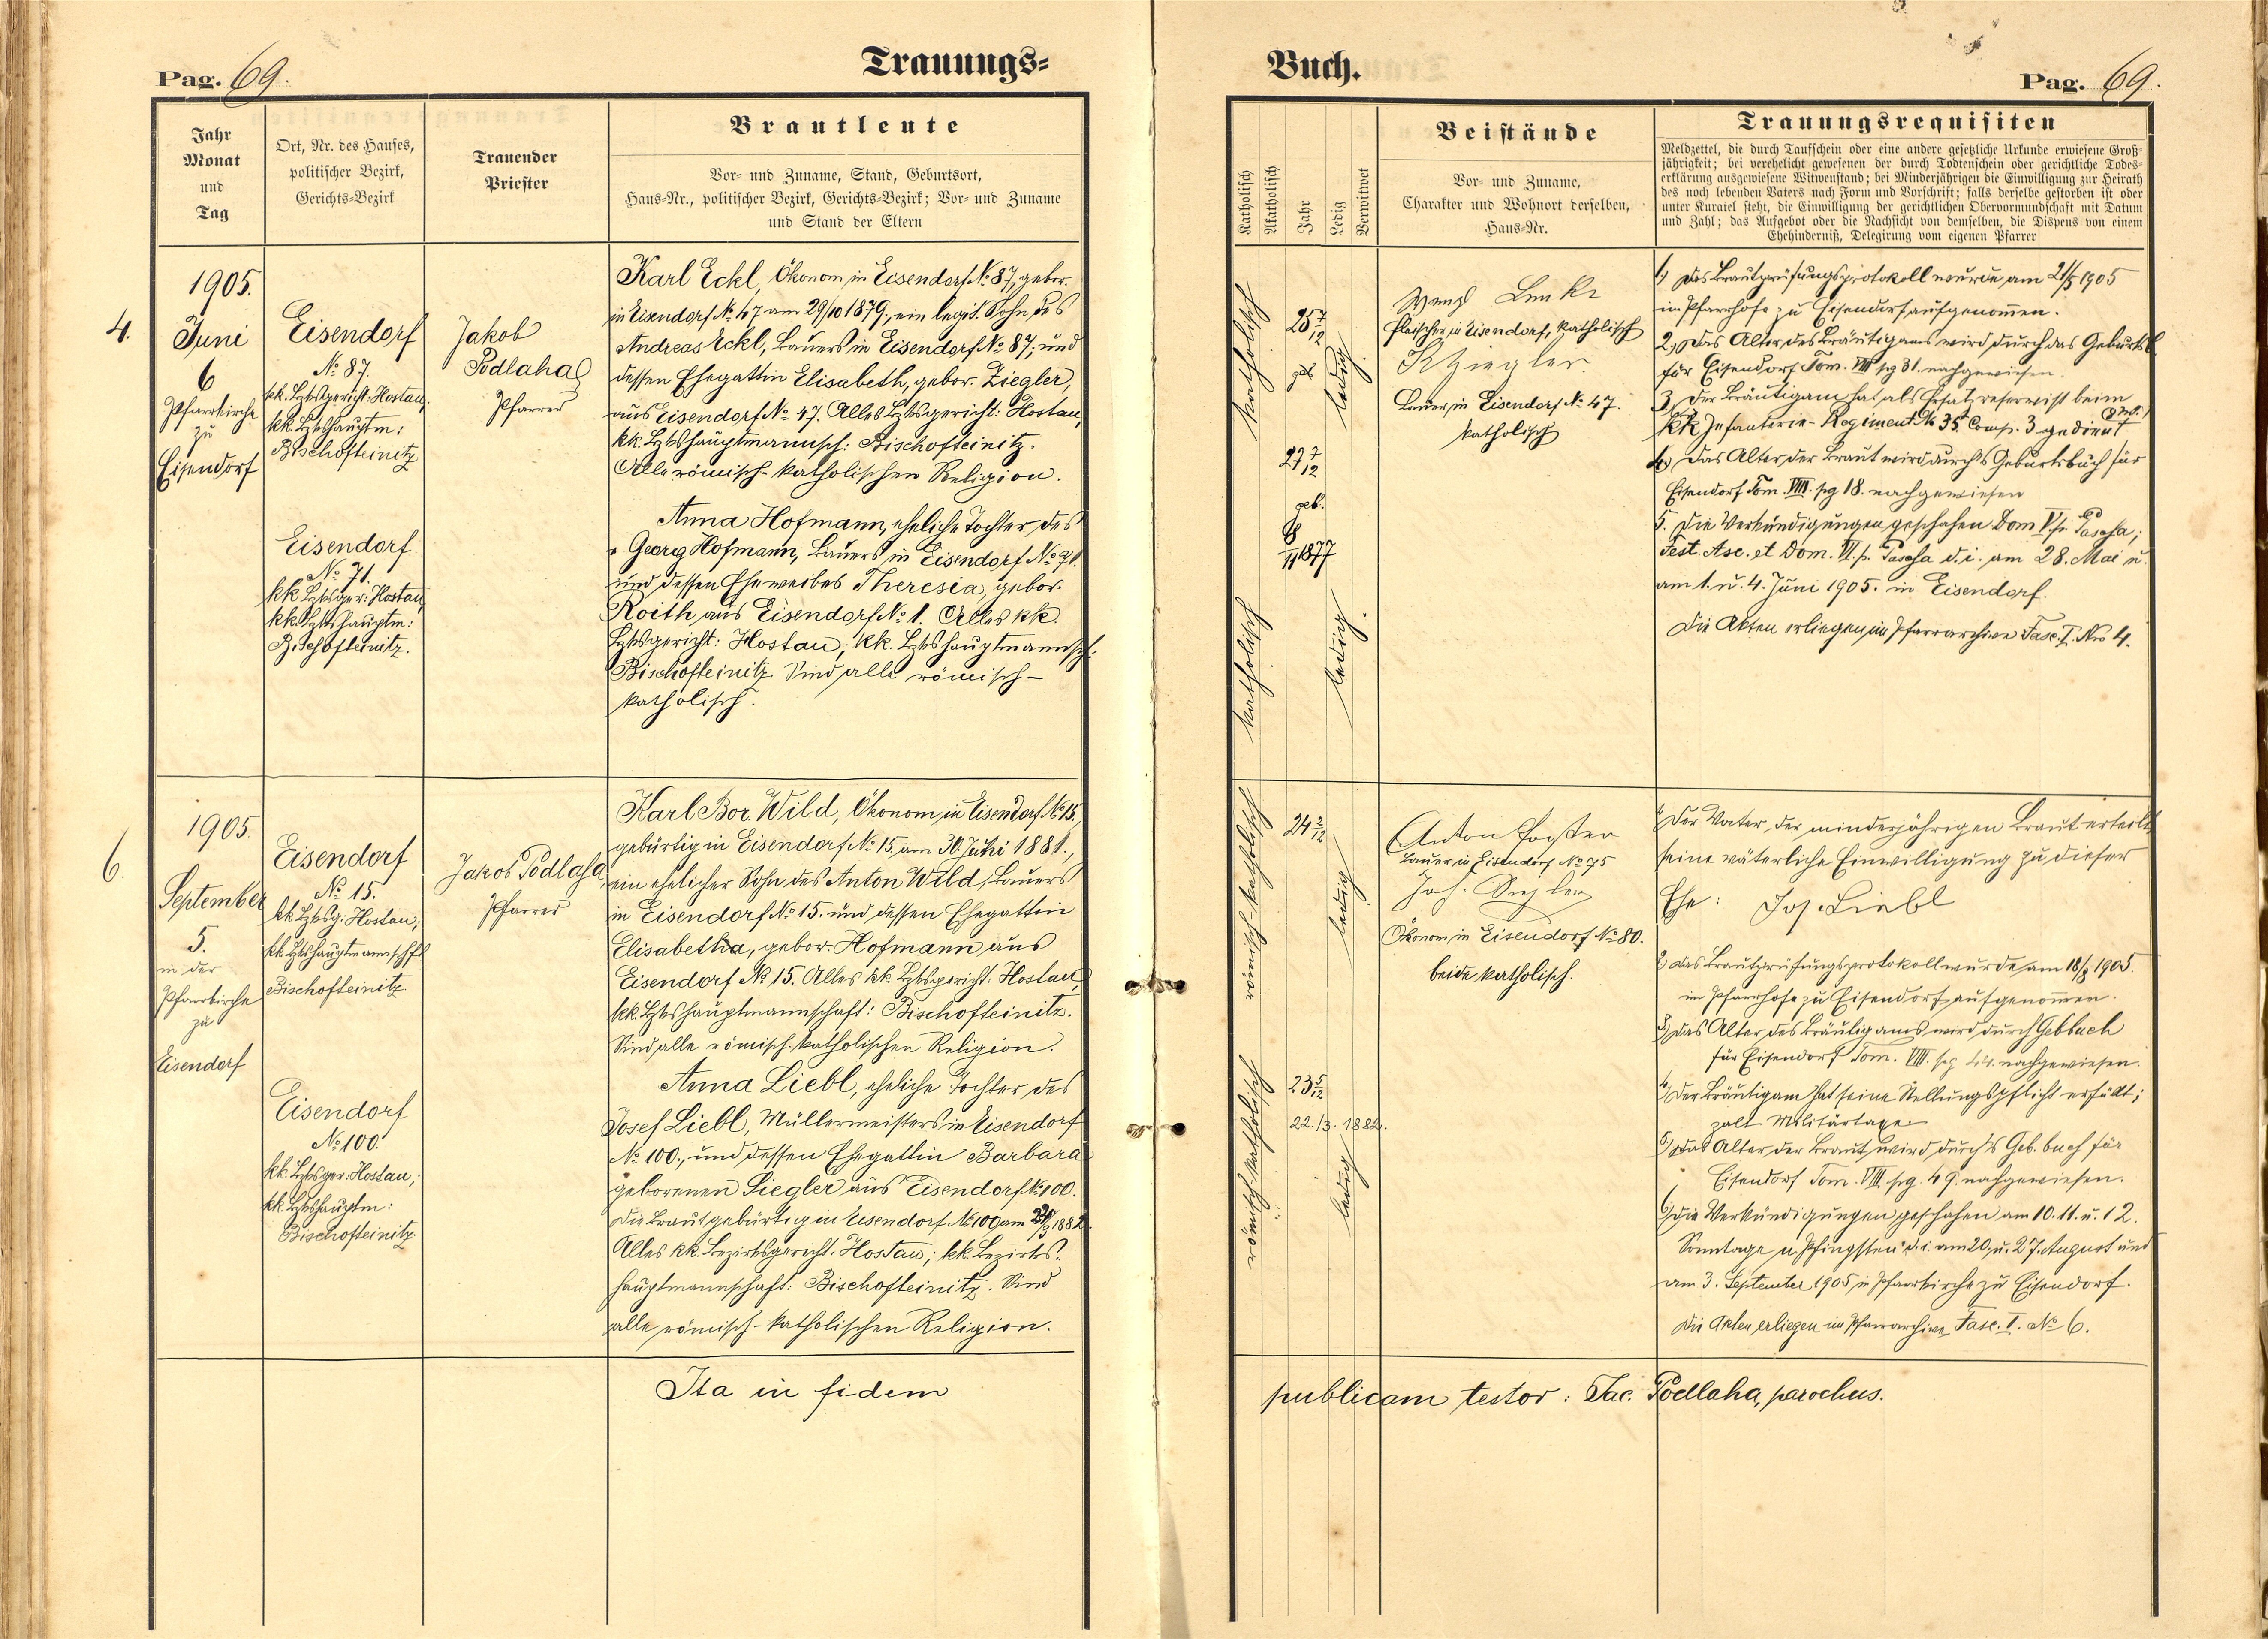 Pag. 69.
Trauungs-
Jahr
Monat
und
Tag
Ort, Nr. des Hauses,
politischer Bezirk,
Gerichts-Bezirk
Trauender
Priester
Brautleute
Vor- und Zuname, Stand, Geburtsort,
Haus-Nr., politischer Bezirk, Gerichts-Bezirk; Vor- und Zuname
und Stand der Eltern
4.
1905.
Juni
6
Pfarrkirche
zu
Eisendorf
Eisendorf
№ 87.
kk. Bzksgericht: Hostau,
kk. Bzkshauptm:
Bischofteinitz
Eisendorf
№ 71.
kk Bzksger: Hostau
kk. Bzkshauptm:
Bischofteinitz.
Jakob
Podlaha
Pfarrer
Karl Eckl, Ökonom, in Eisendorf № 87, gebor.
in Eisendorf № 47 am 29/10 1879., ein legit. Sohn des
Andreas Eckl, Bauers in Eisendorf № 87; und
dessen Ehegattin Elisabeth, gebor. Ziegler,
aus Eisendorf № 47. Alles Bzksgericht: Hostau,
kk. Bzkshauptmannsch: Bischofteinitz.
Alle römisch-katholischen Religion.
Anna Hofmann, eheliche Tochter des
Georg Hofmann, Bauers in Eisendorf № 71.
und dessen Eheweibes Theresia, gebor.
Roith aus Eisendorf № 1. Alles kk.
Bzksgericht: Hostau; kk. Bzkshauptmannsch:
Bischofteinitz. Sind alle römisch-
katholisch.
6.
1905.
September
5.
in der
Pfarrkirche
zu
Eisendorf
Eisendorf
№ 15.
kk. Bzksg: Hostau;
kk. Bzkshauptmannschft
Bischofteinitz.
Eisendorf
№ 100.
kk. Bzksger: Hostau;
kk. Bzkshauptm:
Bischofteinitz.
Jakob Podlaha,
Pfarrer
Karl Bor. Wild, Ökonom in Eisendorf № 15.,
gebürtig in Eisendorf № 15, am 30. 1881.,
ein ehelicher Sohn des Anton Wild, Bauers
in Eisendorf № 15. und dessen Ehegattin
Elisabetha, gebor. Hofmann aus
Eisendorf № 15. Alles kk. Bzksgericht: Hostau,
kk. Bzkshauptmannschaft: Bischofteinitz.
Sind alle römisch-katholischen Religion.
Anna Liebl, eheliche Tochter des
Josef Liebl, Müllermeisters in Eisendorf
№ 100., und dessen Ehegattin Barbara
geborenen Siegler aus Eisendorf № 100.
Die Braut gebürtig in Eisendorf № 100 am 22/3 1882.
Alles kk. Bezirksgericht: Hostau; kk. Bezirks-
hauptmannschaft: Bischofteinitz. Sind
alle römisch-katholischen Religion.
Ita in fidem
Buch.
Pag. 69.
Katholisch
Akatholisch
Jahr
Ledig
Verwitwet
Beistände
Vor- und Zuname,
Charakter und Wohnort derselben,
Haus-Nr.
Trauungsrequisiten
Meldzettel, die durch Taufschein oder eine andere gesetzliche Urkunde erwiesene Groß-
jährigkeit; bei verehelicht gewesenen der durch Todtenschein oder gerichtliche Todes-
erklärung ausgewiesene Witwenstand; bei Minderjährigen die Einwilligung zur Heirath
des noch lebenden Vaters nach Form und Vorschrift; falls derselbe gestorben ist oder
unter Kuratel steht, die Einwilligung der gerichtlichen Obervormundschaft mit Datum
und Zahl; das Aufgebot oder die Nachsicht von demselben, die Dispens von einem
Ehehinderniß, Delegirung vom eigenen Pfarrer
katholisch
25 7/12
ledig.
katholisch
27 7/12
geb.
8
/11 1877
ledig.
Wenzl
Fleischer in Eisendorf, katholisch
Bauer in Eisendorf № 47.
katholisch
1.) Das Brautprüfungsprotokoll wurde am 21/5 1905
im Pfarrhofe zu Eisendorf aufgenommen.
2.) Das Alter des Bräutigams wird durch das Geburtsb.
für Eisendorf Tom. VIII pg 31. nachgewiesen.
3.) Der Bräutigam hat als Ersatzreservist beim
kk Infanterie-Regiment № 35 Comp. 3 gedient
4.) Das Alter der Braut wird durch's Geburtsbuch für
Eisendorf Tom. VIII. pg 18. nachgewiesen
5. Die Verkündigungen geschahen Dom V. p. Pascha;
Fest. Asc. et Dom. VI. p. Pascha d. i. am 28. Mai u.
am 1. u. 4. Juni 1905. in Eisendorf.
Die Akten erliegen im Pfarrarchive Fasc. I. Nro 4.
römisch-katholisch
24 2/12
ledig
römisch-katholisch
23 5/12
22./3. 1882.
ledig
Anton Forster
Bauer in Eisendorf № 75
Joh.
Ökonom in Eisendorf № 80.
beide katholisch.
1.) Der Vater der minderjährigen Braut erteilt
seine väterliche Einwilligung zu dieser
Ehe: Jos. Liebl
2.) Das Brautprüfungsprotokoll wurde am 18/8 1905.
im Pfarrhofe zu Eisendorf aufgenommen.
3.) Das Alter des Bräutigams wird durch Gebbuch
für Eisendorf Tom. VIII. pg 44. nachgewiesen.
4.) Der Bräutigam hat seine Stellungspflicht erfüllt;
zalt Militärtaxe
5.) Das Alter der Braut wird durch's Geb. buch für
Eisendorf Tom. VIII. pg. 49. nachgewiesen.
6.) Die Verkündigungen geschahen am 10. 11. u. 12.
Sonntage n. Pfingsten d. i. am 20. u. 27. August und
am 3. September 1905 in Pfarrkirche zu Eisendorf.
Die Akten erliegen im Pfarrarchive Fasc. I. № 6.
publicam testor: Jac. Podlaha, parochus.